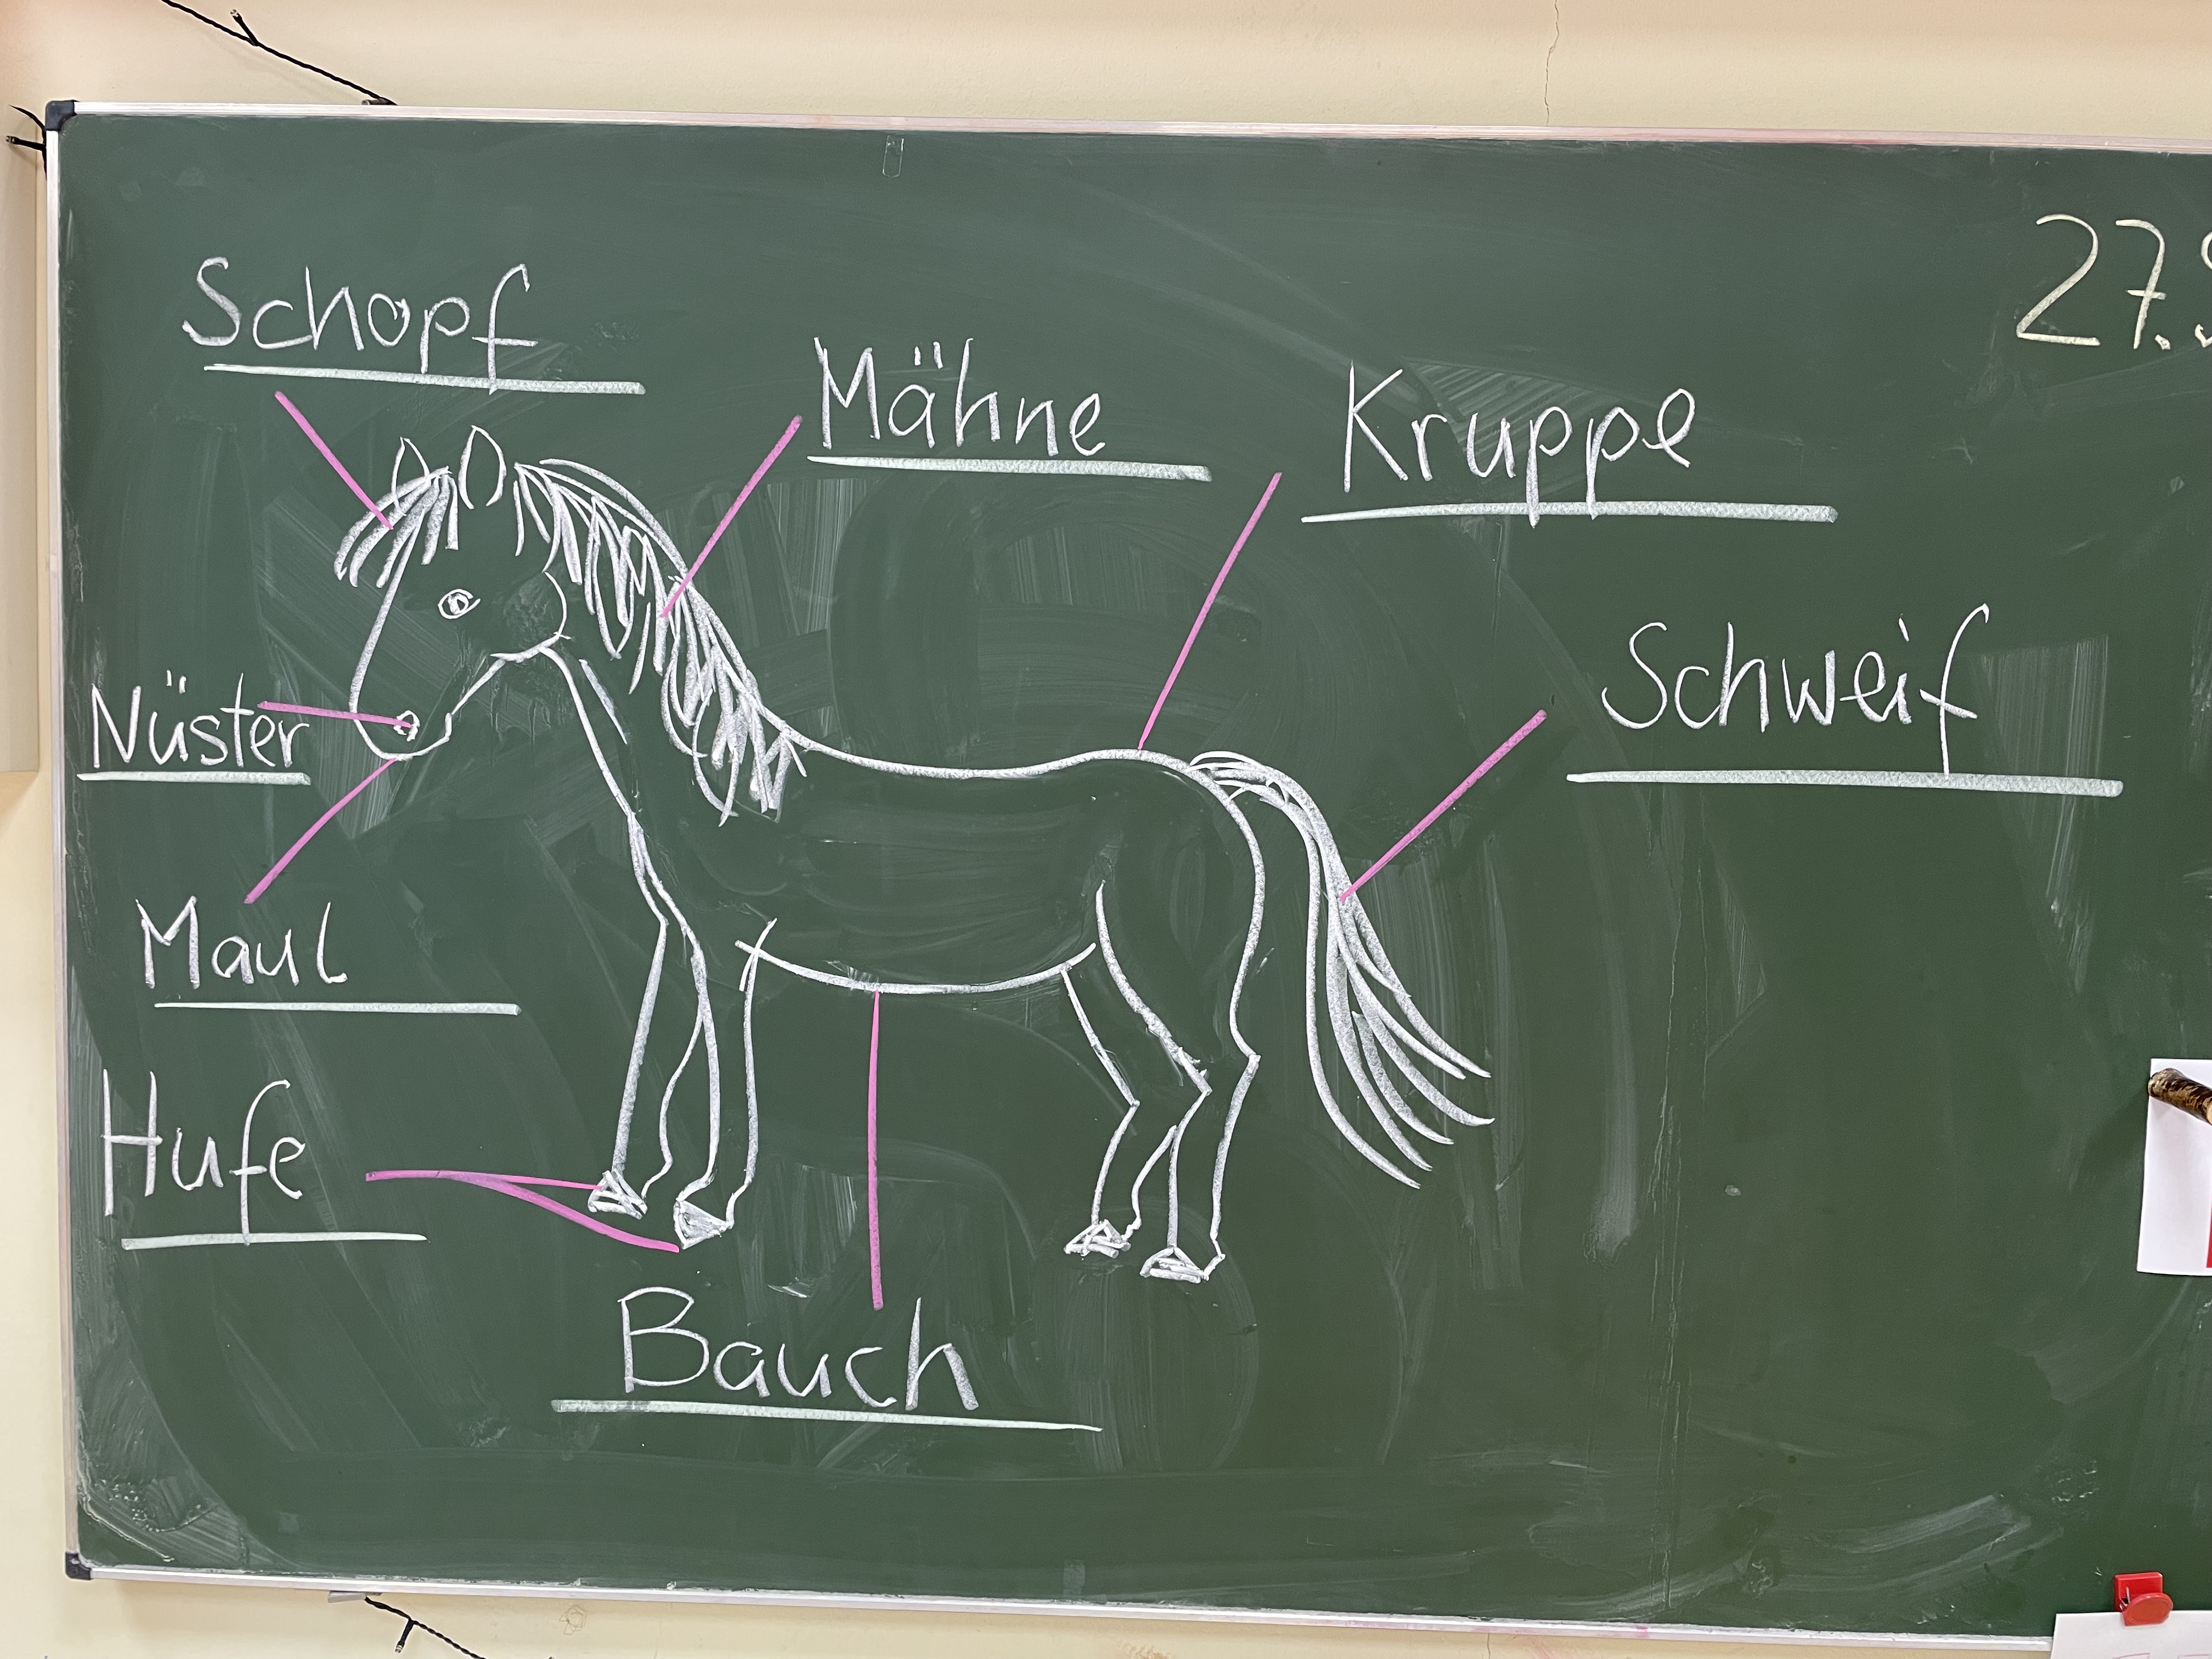 Schopf
Mähne
Kruppe
27.
Schweif
Nüster
Maul
Hufe
Bauch